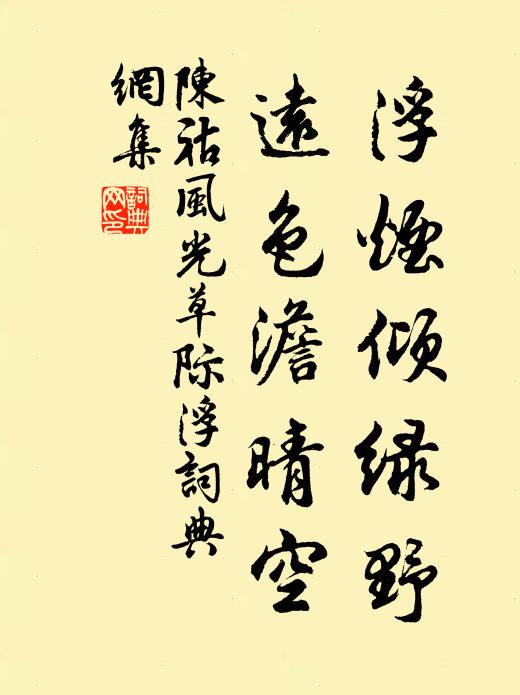 浮煙傾绿野
遠色澹晴空
陳祜風光草际浮詞典
網集
詞典
网印